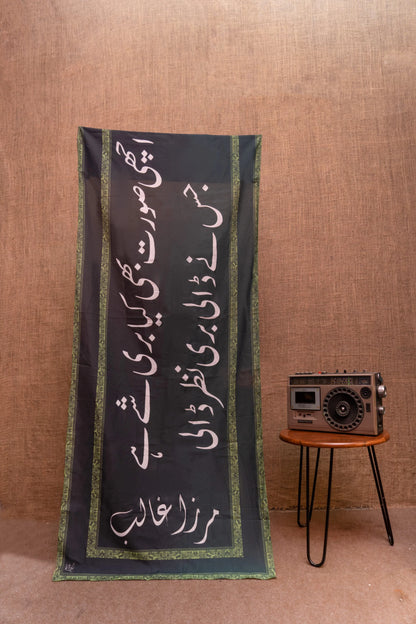 اچھی صورت بھی کیا بری شے ہے
جس نے ڈالی بری نظر ڈالی
مرزا غالب